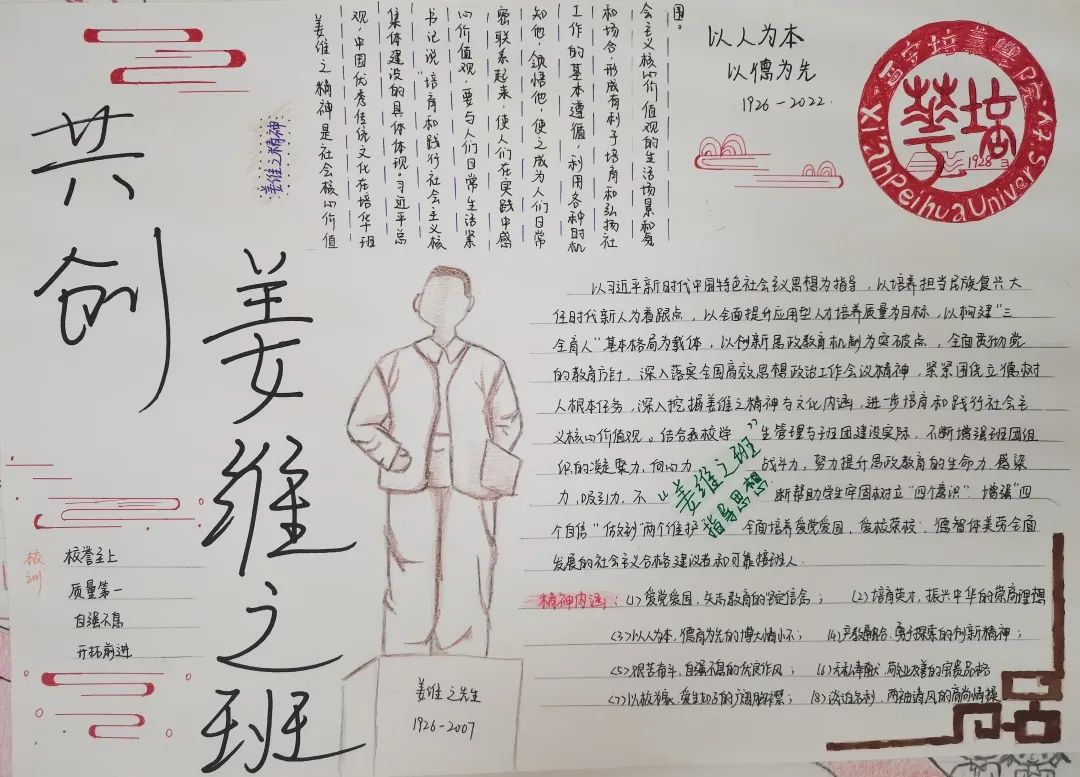 共创
姜维之班
姜维之精神
姜维之精神是社会核心价值
观,中国优秀传统文化在培华班
集体建设的具体体现。习近平总
书记说"培育和践行社会主义核
心价值观,要与人们日常生活紧
密联系起来,使人们在实践中感
知他,领悟他,使之成为人们日常
工作的基本遵循,利用各种时机
和场合,形成有利于培育和弘扬社
会主义核心价值观的生活场景和氛
围。
以人为本
以德为先
1926-2022
西安培華學院
培華
1928
Xi'an Peihua University
以习近平新时代中国特色社会主义思想为指导,以培养担当民族复兴大
任时代新人为着眼点,以全面提升应用型人才培养质量为目标,以构建"三
全育人"基本格局为载体,以创新思政教育机制为突破点,全面贯彻党
的教育方针,深入落实全国高效思想政治工作会议精神,紧紧围优立德树
人根本任务,深入挖掘姜维之精神与文化内涵,进步培育和践行社会主
义核心价值观。结合我校学生管理与班团建设实际,不断增强班团组
织的凝聚力,向心力战斗力,努力提升思政教育的生命力,感染
力,吸引力,不断帮助学生牢固树立"四个意识"增强"四
个自信"做到"两个维护全面培养爱党爱国,爱校荣校,德智体美劳全面
发展的社会主义合格建设者和可靠接班人.
"姜维之班"
指导思想
校训
校誉至上
质量第一
自强不息
开拓前进
精神内涵:(1)爱党爱国,矢志教育的坚定信念; (2)培育英才,振兴中华的崇高理想
(3)以人为本,德育为先的博大情怀; (4)产教融合,勇于探索的创新精神;
(5)艰苦奋斗,自强不息的优良作风; (6)无私奉献,敬业友善的宝贵品格
(7)以校为家,爱生如子的广阔胸襟; (8)淡泊名利,两袖清风的高尚情操
姜维之先生
1926-2007